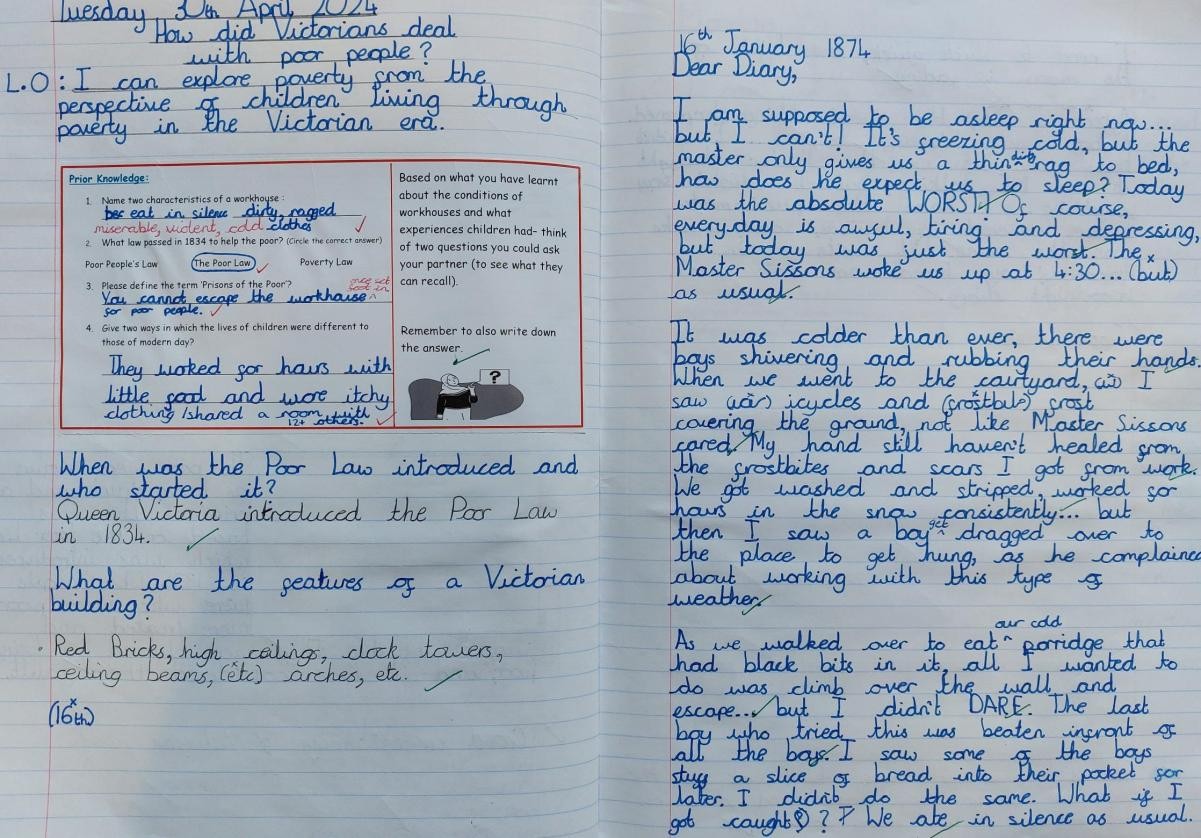 Tuesday 30th April 2024
How did Victorians deal
with poor people?
L.O: I can explore poverty from the
perspective of children living through
poverty in the Victorian era.
Prior Knowledge:
1. Name two characteristics of a workhouse :
eat in silence dirty, ragged
miserable, violent, cold clothes
2. What law passed in 1834 to help the poor? (Circle the correct answer)
Poor People's Law The Poor Law Poverty Law
3. Please define the term 'Prisons of the Poor'? once set
foot in
You cannot escape the workhouse ^
for poor people.
4. Give two ways in which the lives of children were different to
those of modern day?
They worked for hours with
little food and wore itchy
clothing /shared a room with
12+ others.
Based on what you have learnt
about the conditions of
workhouses and what
experiences children had- think
of two questions you could ask
your partner (to see what they
can recall).
Remember to also write down
the answer.
?
When was the Poor Law introduced and
who started it?
Queen Victoria introduced the Poor Law
in 1834.
What are the features of a Victorian
building?
Red Bricks, high ceilings, clock towers,
ceiling beams, (etc) arches, etc.
(16th)
16th January 1874
Dear Diary,
I am supposed to be asleep right now...
but, I can't! It's freezing cold, but the
master only gives us a thin dirty rag to bed,
how does he expect us to sleep? Today
was the absolute WORST! Of course,
everyday is awful, tiring and depressing,
but today was just the worst. The
Master Sissons woke us up at 4:30... (but)
as usual.
It was colder than ever, there were
boys shivering and rubbing their hands.
When we went to the courtyard, I
saw icycles and frost
covering the ground, not like Master Sissons
cared. My hand still haven't healed from
the frostbites and scars I got from work.
We got washed and stripped, worked for
hours in the snow consistently... but
then I saw a boy get dragged over to
the place to get hung, as he complained
about working with this type of
weather.
our cold
As we walked over to eat ^ porridge that
had black bits in it, all I wanted to
do was climb over the wall and
escape... but I didn't DARE. The last
boy who tried this was beaten infront of
all the boys. I saw some of the boys
stuff a slice of bread into their pocket for
later. I didn't do the same. What if I
got caught? We ate in silence as usual.